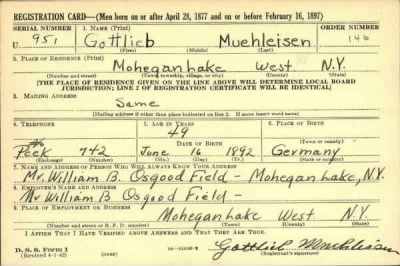 REGISTRATION CARD—(Men born on or after April 28, 1877 and on or before February 16, 1897)
SERIAL NUMBER 1. NAME (Print) ORDER NUMBER
U 951 Gottlieb Muehleisen 146
(First) (Middle) (Last)
2. PLACE OF RESIDENCE (Print)
Mohegan Lake West N.Y.
(Number and street) (Town, township, village, or city) (County) (State)
[THE PLACE OF RESIDENCE GIVEN ON THE LINE ABOVE WILL DETERMINE LOCAL BOARD
JURISDICTION; LINE 2 OF REGISTRATION CERTIFICATE WILL BE IDENTICAL]
3. MAILING ADDRESS
Same
(Mailing address if other than place indicated on line 2. If same insert word same)
4. TELEPHONE 5. AGE IN YEARS 6. PLACE OF BIRTH
49
DATE OF BIRTH
Peek 742 June 16 1892 Germany
(Exchange) (Number) (Mo.) (Day) (Yr.) (State or country)
7. NAME AND ADDRESS OF PERSON WHO WILL ALWAYS KNOW YOUR ADDRESS
Mr. William B. Osgood Field - Mohegan Lake, N.Y.
8. EMPLOYER'S NAME AND ADDRESS
Mr William B Osgood Field -
9. PLACE OF EMPLOYMENT OR BUSINESS
Mohegan Lake West N.Y.
(Number and street or R. F. D. number) (Town) (County) (State)
I AFFIRM THAT I HAVE VERIFIED ABOVE ANSWERS AND THAT THEY ARE TRUE.
D. S. S. Form 1 Gottlieb Muehleisen
(Revised 4-1-42) (over) (Registrant's signature)